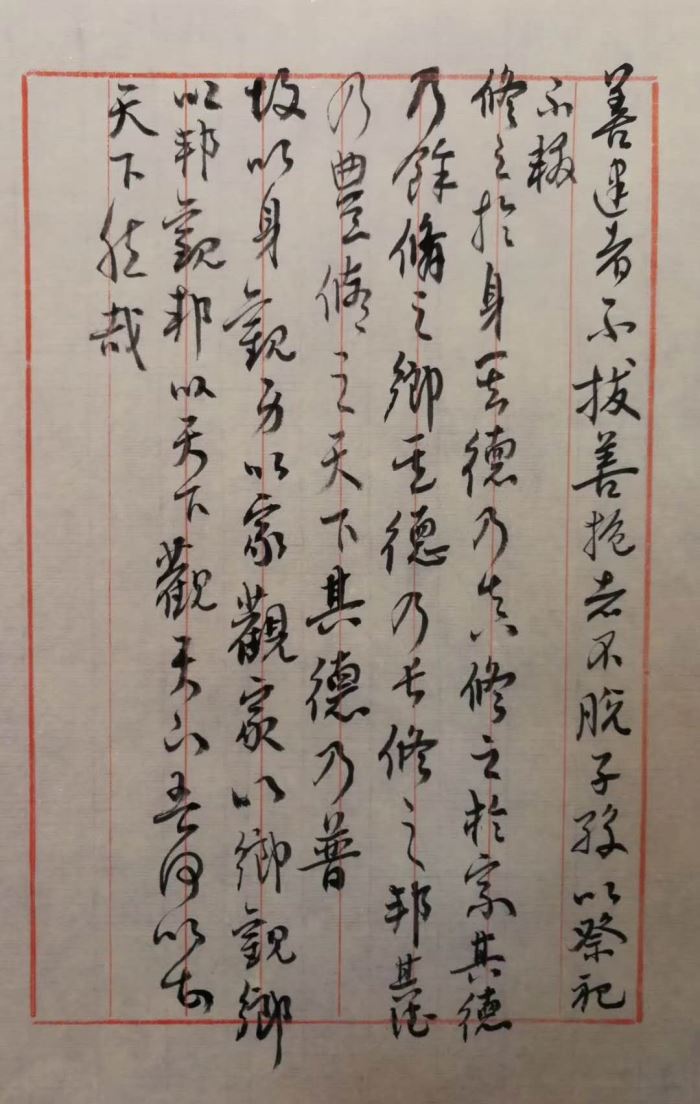 善建者不拔善抱者不脱子孫以祭祀
不輟
修之於身其德乃真修之於家其德
乃餘修之鄉其德乃長修之邦其德
乃豊修之天下其德乃普
故以身觀身以家觀家以鄉觀鄉
以邦觀邦以天下觀天下吾何以知
天下然哉